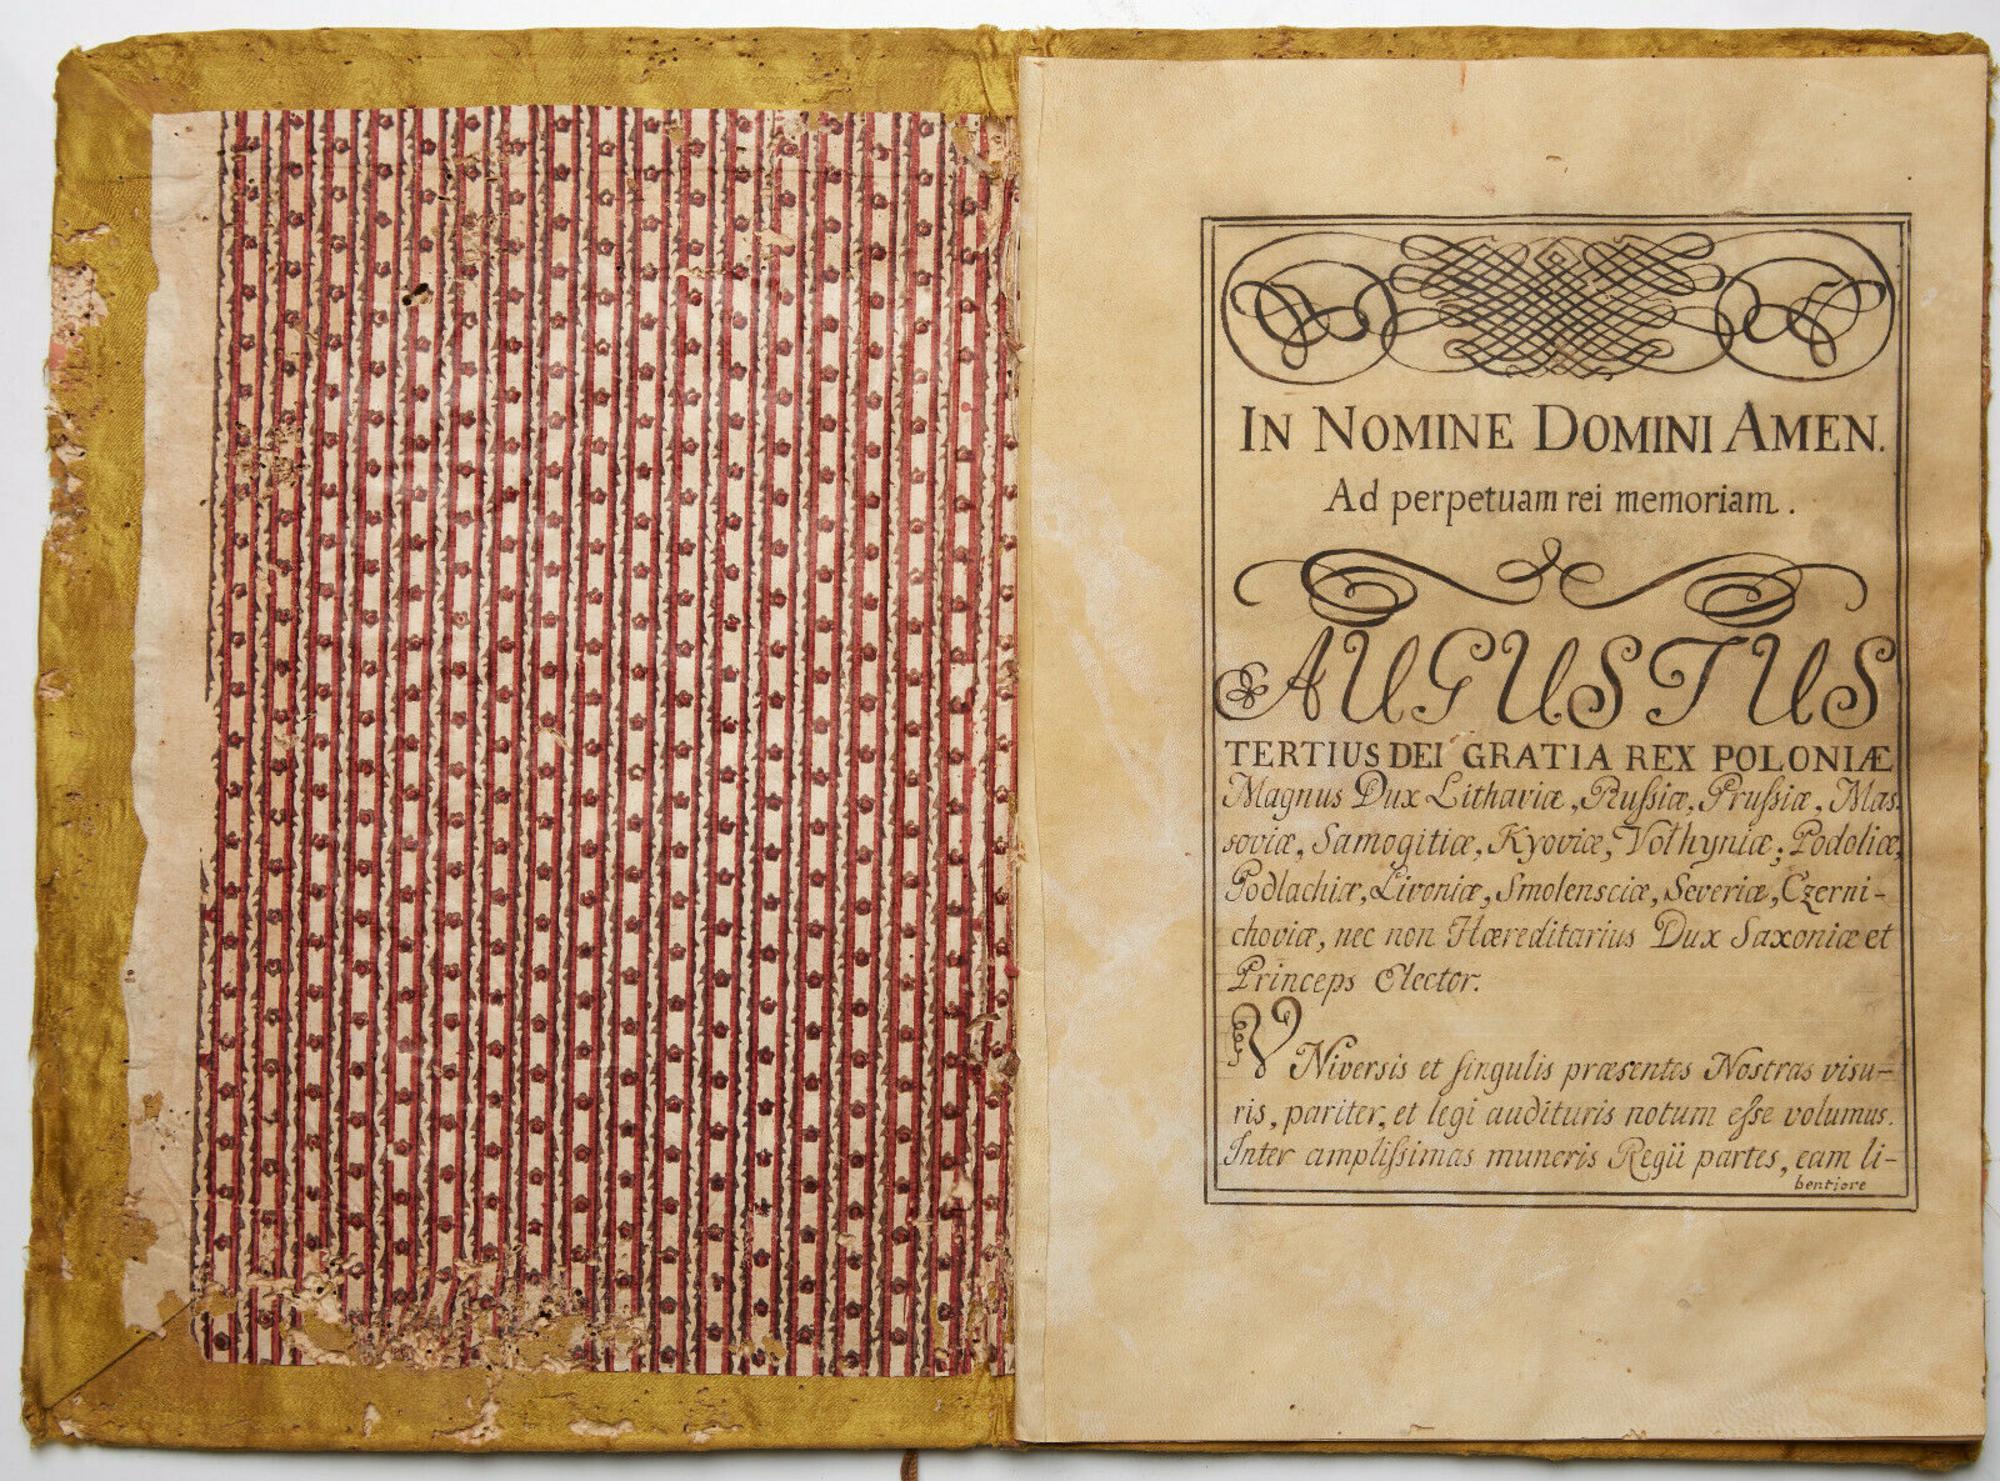 IN NOMINE DOMINI AMEN.
Ad perpetuam rei memoriam.
AUGUSTUS
TERTIUS DEI GRATIA REX POLONIÆ
Magnus Dux Lithaviæ, Rußiæ, Prußiæ, Mas-
soviæ, Samogitiæ, Kyoviæ, Volhyniæ, Podoliæ,
Podlachiæ, Livoniæ, Smolensciæ, Severiæ, Czerni-
choviæ, nec non Hæreditarius Dux Saxoniæ et
Princeps Elector.
VNiversis et singulis præsentes Nostras visu-
ris, pariter, et legi audituris notum eße volumus.
Inter amplißimas muneris Regii partes, eam li-
bentiore